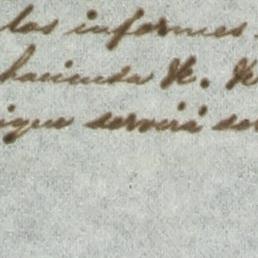 los informes
hacienda &. &
igue servirá